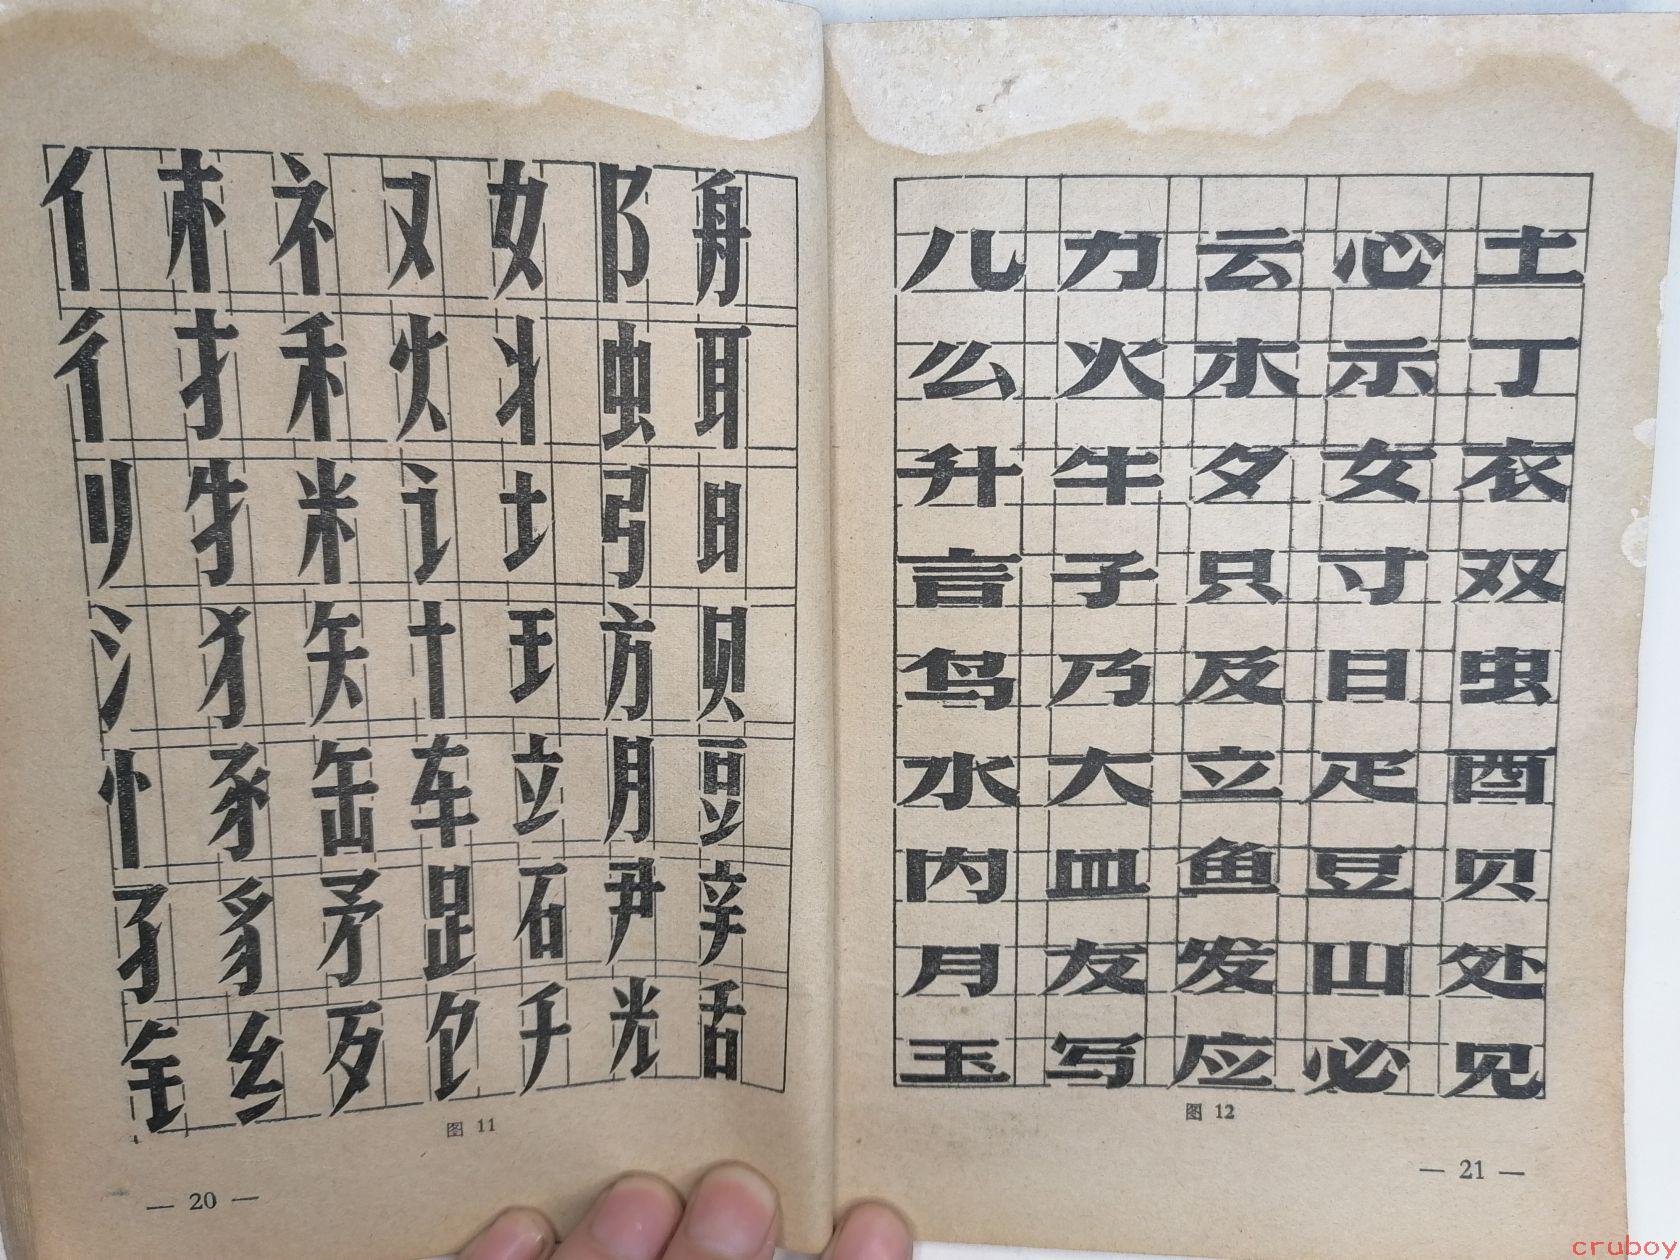 亻 木 礻 又 女 阝 舟
彳 扌 禾 火 丬 虫 耳
刂 牜 米 讠 土 弓 日
氵 犭 矢 十 王 方 贝
忄 豕 缶 车 立 月 豆
孑 豸 矛 𧾷 石 尹 辛
钅 纟 歹 饣 子 光 舌
图 11
— 20 —
儿 力 云 心 土
么 火 木 示 丁
升 牛 夕 女 衣
言 子 只 寸 双
鸟 乃 及 目 虫
水 大 立 疋 酉
内 皿 鱼 豆 贝
月 友 发 山 处
玉 写 应 必 见
图 12
— 21 —
cruboy